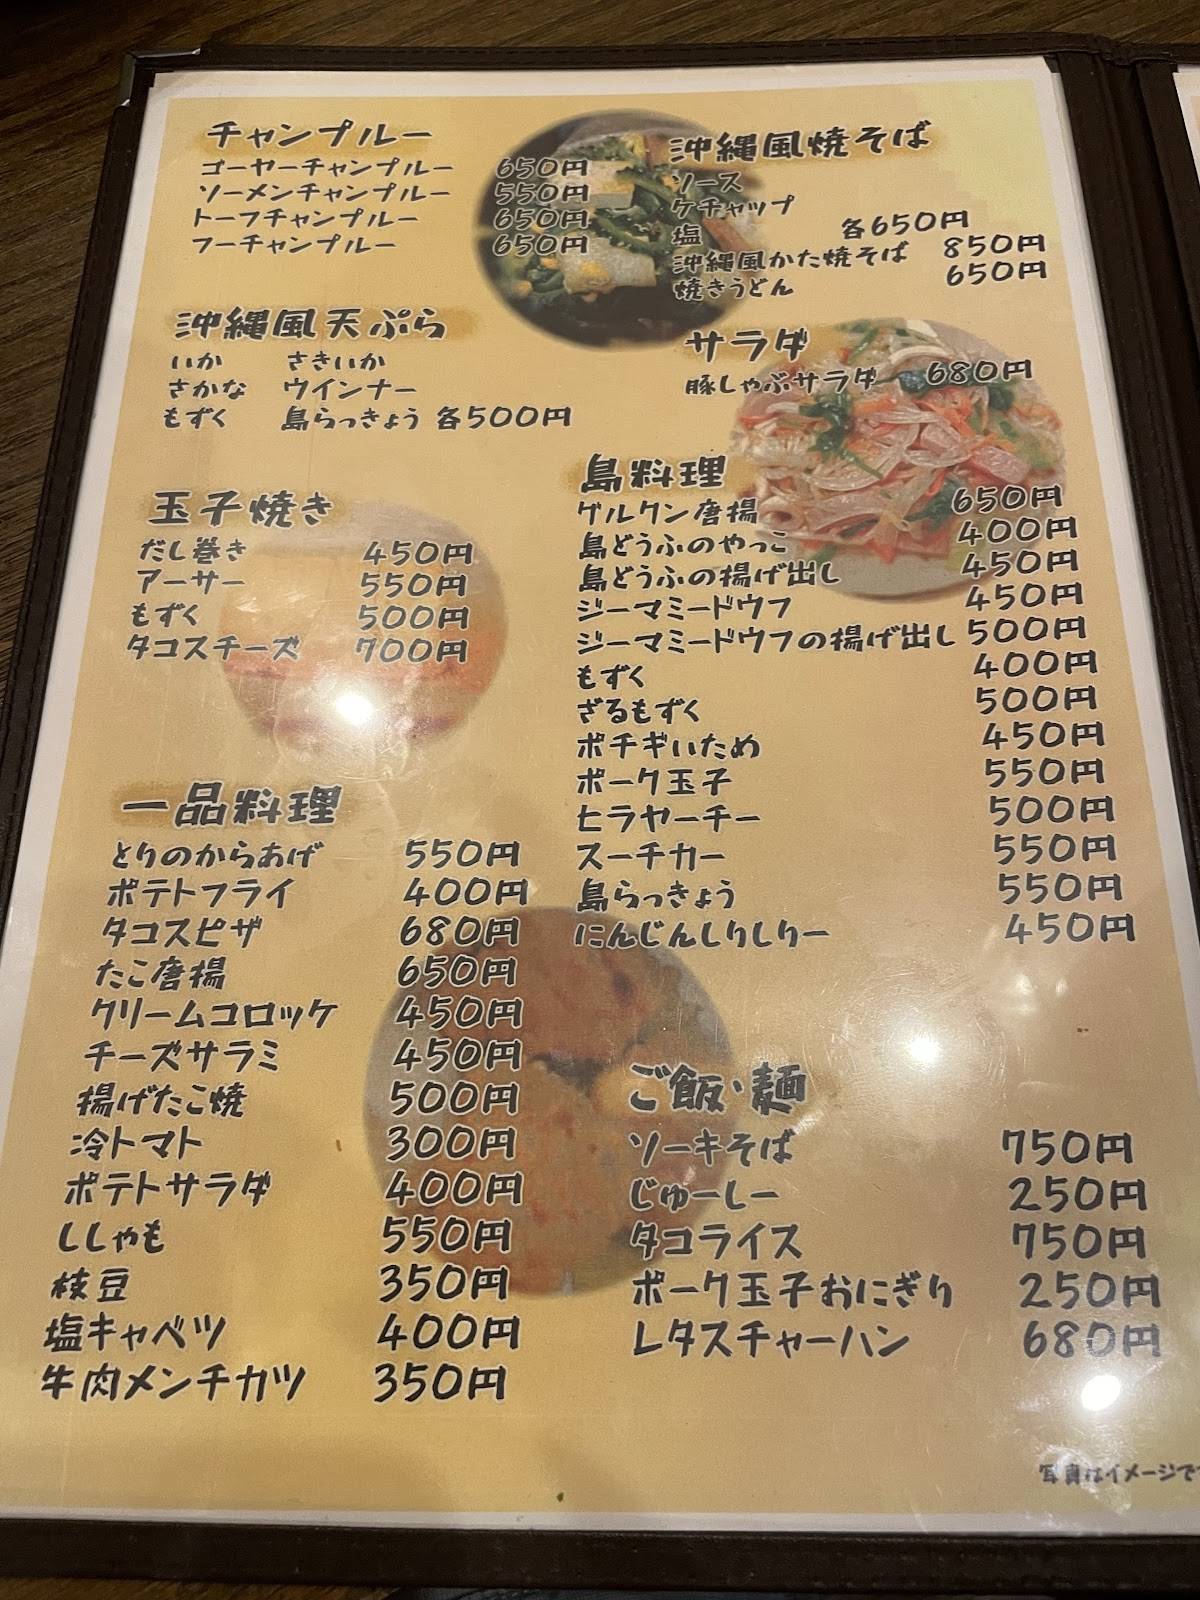 チャンプルー
ゴーヤーチャンプルー 650円
ソーメンチャンプルー 550円
トーフチャンプルー 650円
フーチャンプルー 650円
沖縄風天ぷら
いか さきいか
さかな ウインナー
もずく 島らっきょう 各500円
玉子焼き
だし巻き 450円
アーサー 550円
もずく 500円
タコスチーズ 700円
一品料理
とりのからあげ 550円
ポテトフライ 400円
タコスピザ 680円
たこ唐揚 650円
クリームコロッケ 450円
チーズサラミ 450円
揚げたこ焼 500円
冷トマト 300円
ポテトサラダ 400円
ししゃも 550円
枝豆 350円
塩キャベツ 400円
牛肉メンチカツ 350円
沖縄風焼そば
ソース
ケチャップ
塩 各650円
沖縄風かた焼そば 850円
焼きうどん 650円
サラダ
豚しゃぶサラダ 680円
島料理
グルクン唐揚 650円
島どうふのやっこ 400円
島どうふの揚げ出し 450円
ジーマミードウフ 450円
ジーマミードウフの揚げ出し 500円
もずく 400円
ざるもずく 500円
ポチギいため 450円
ポーク玉子 550円
ヒラヤーチー 500円
スーチカー 550円
島らっきょう 550円
にんじんしりしりー 450円
ご飯・麺
ソーキそば 750円
じゅーしー 250円
タコライス 750円
ポーク玉子おにぎり 250円
レタスチャーハン 680円
写真はイメージで